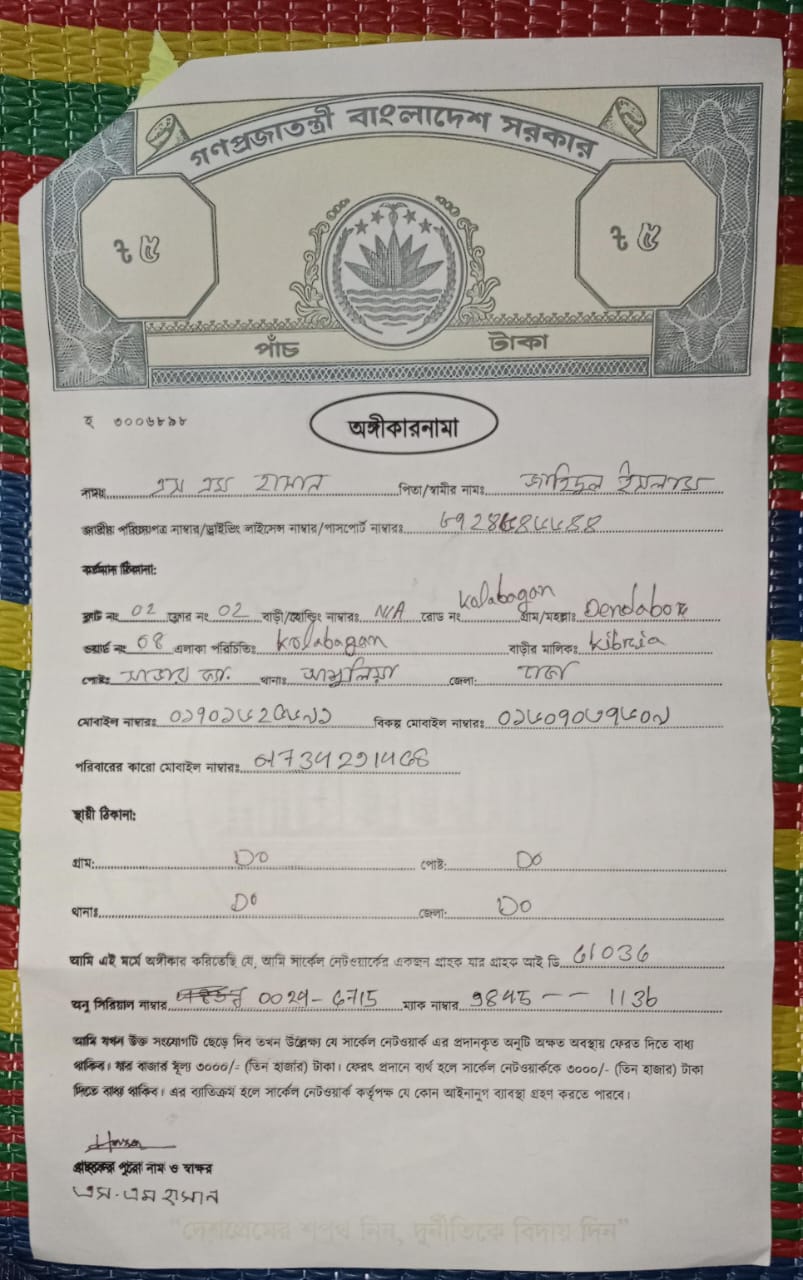 গণপ্রজাতন্ত্রী বাংলাদেশ সরকার
৳ ৫ ৳ ৫
পাঁচ টাকা
হ ৩০০৬৮৯৮
অঙ্গীকারনামা
নামঃ এস এম হাসান পিতা/স্বামীর নামঃ জাহিদুল ইসলাম
জাতীয় পরিচয়পত্র নাম্বার/ড্রাইভিং লাইসেন্স নাম্বার/পাসপোর্ট নাম্বারঃ
বর্তমান ঠিকানা:
ফ্লাট নং 02 ফ্লোর নং 02 বাড়ী/হোল্ডিং নাম্বারঃ N/A রোড নং Kalabagan গ্রাম/মহল্লাঃ
ওয়ার্ড নং 08 এলাকা পরিচিতিঃ Kolabagan বাড়ীর মালিকঃ Kibria
পোষ্টঃ সাভার ক্যা. থানাঃ আশুলিয়া জেলা: ঢাকা
মোবাইল নাম্বারঃ বিকল্প মোবাইল নাম্বারঃ
পরিবারের কারো মোবাইল নাম্বারঃ
স্থায়ী ঠিকানা:
গ্রাম: Do পোষ্ট: Do
থানাঃ Do জেলা: Do
আমি এই মর্মে অঙ্গীকার করিতেছি যে, আমি সার্কেল নেটওয়ার্কের একজন গ্রাহক যার গ্রাহক আই ডি 61036
অনু সিরিয়াল নাম্বার 0029-6715 ম্যাক নাম্বার 9845 -- 1136
আমি যখন উক্ত সংযোগটি ছেড়ে দিব তখন উল্লেক্ষ্য যে সার্কেল নেটওয়ার্ক এর প্রদানকৃত অনুটি অক্ষত অবস্থায় ফেরত দিতে বাধ্য
থাকিব। যার বাজার মূল্য ৩০০০/= (তিন হাজার) টাকা। ফেরৎ প্রদানে ব্যর্থ হলে সার্কেল নেটওয়ার্ককে ৩০০০/- (তিন হাজার) টাকা
দিতে বাধ্য থাকিব। এর ব্যতিক্রম হলে সার্কেল নেটওয়ার্ক কর্তৃপক্ষ যে কোন আইনানুগ ব্যাবস্থা গ্রহণ করতে পারবে।
Hasan
গ্রাহকের পুরো নাম ও স্বাক্ষর
এস.এম হাসান
"দেশপ্রেমের শপথ নিন, দুর্নীতিকে বিদায় দিন"